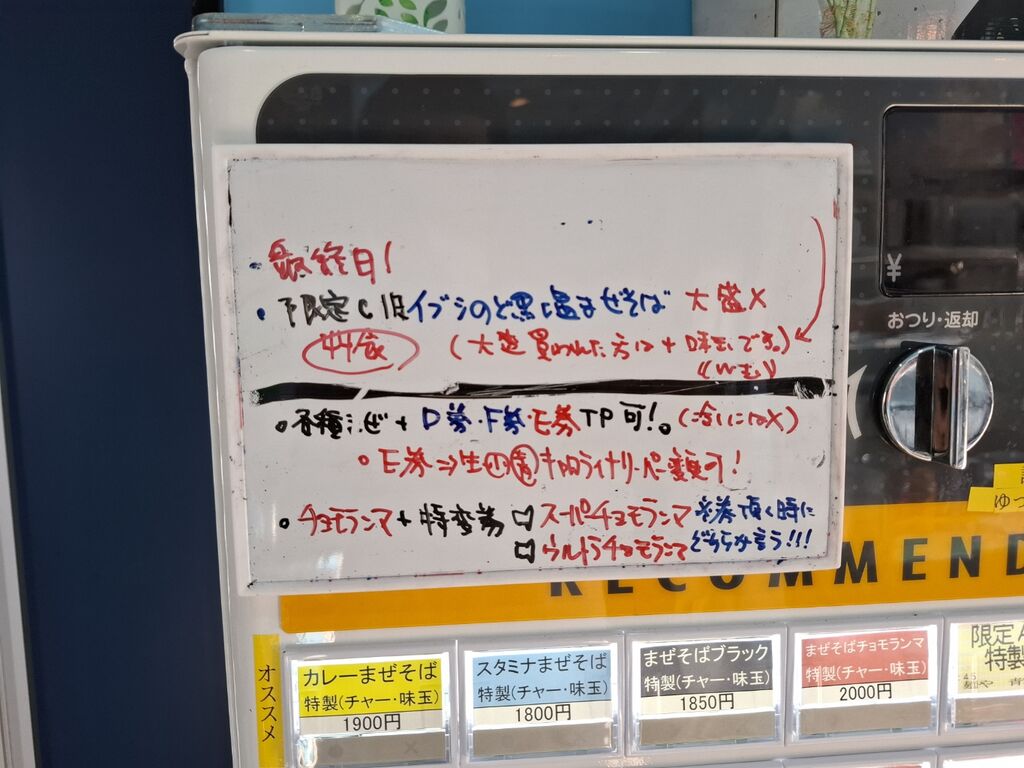 ・最終日!
・限定Cはイブシのど黒塩まぜそば 大盛×
(大盛買われた方は+味玉です。)
・各種まぜ+D券・F券・E券TP可!。(冷いには×)
・E券⇒生
キャロライナリーパー変更可!
・チョモランマ+特変券
スーパーチョモランマ
ウルトラチョモランマ
※券頂く時に
どちらか言う!!!
¥
おつり・返却
ゆっ
RECOMMEND
オススメ
カレーまぜそば
特製(チャー・味玉)
1900円
スタミナまぜそば
特製(チャー・味玉)
1800円
まぜそばブラック
特製(チャー・味玉)
1850円
まぜそばチョモランマ
特製(チャー・味玉)
2000円
限定
特製